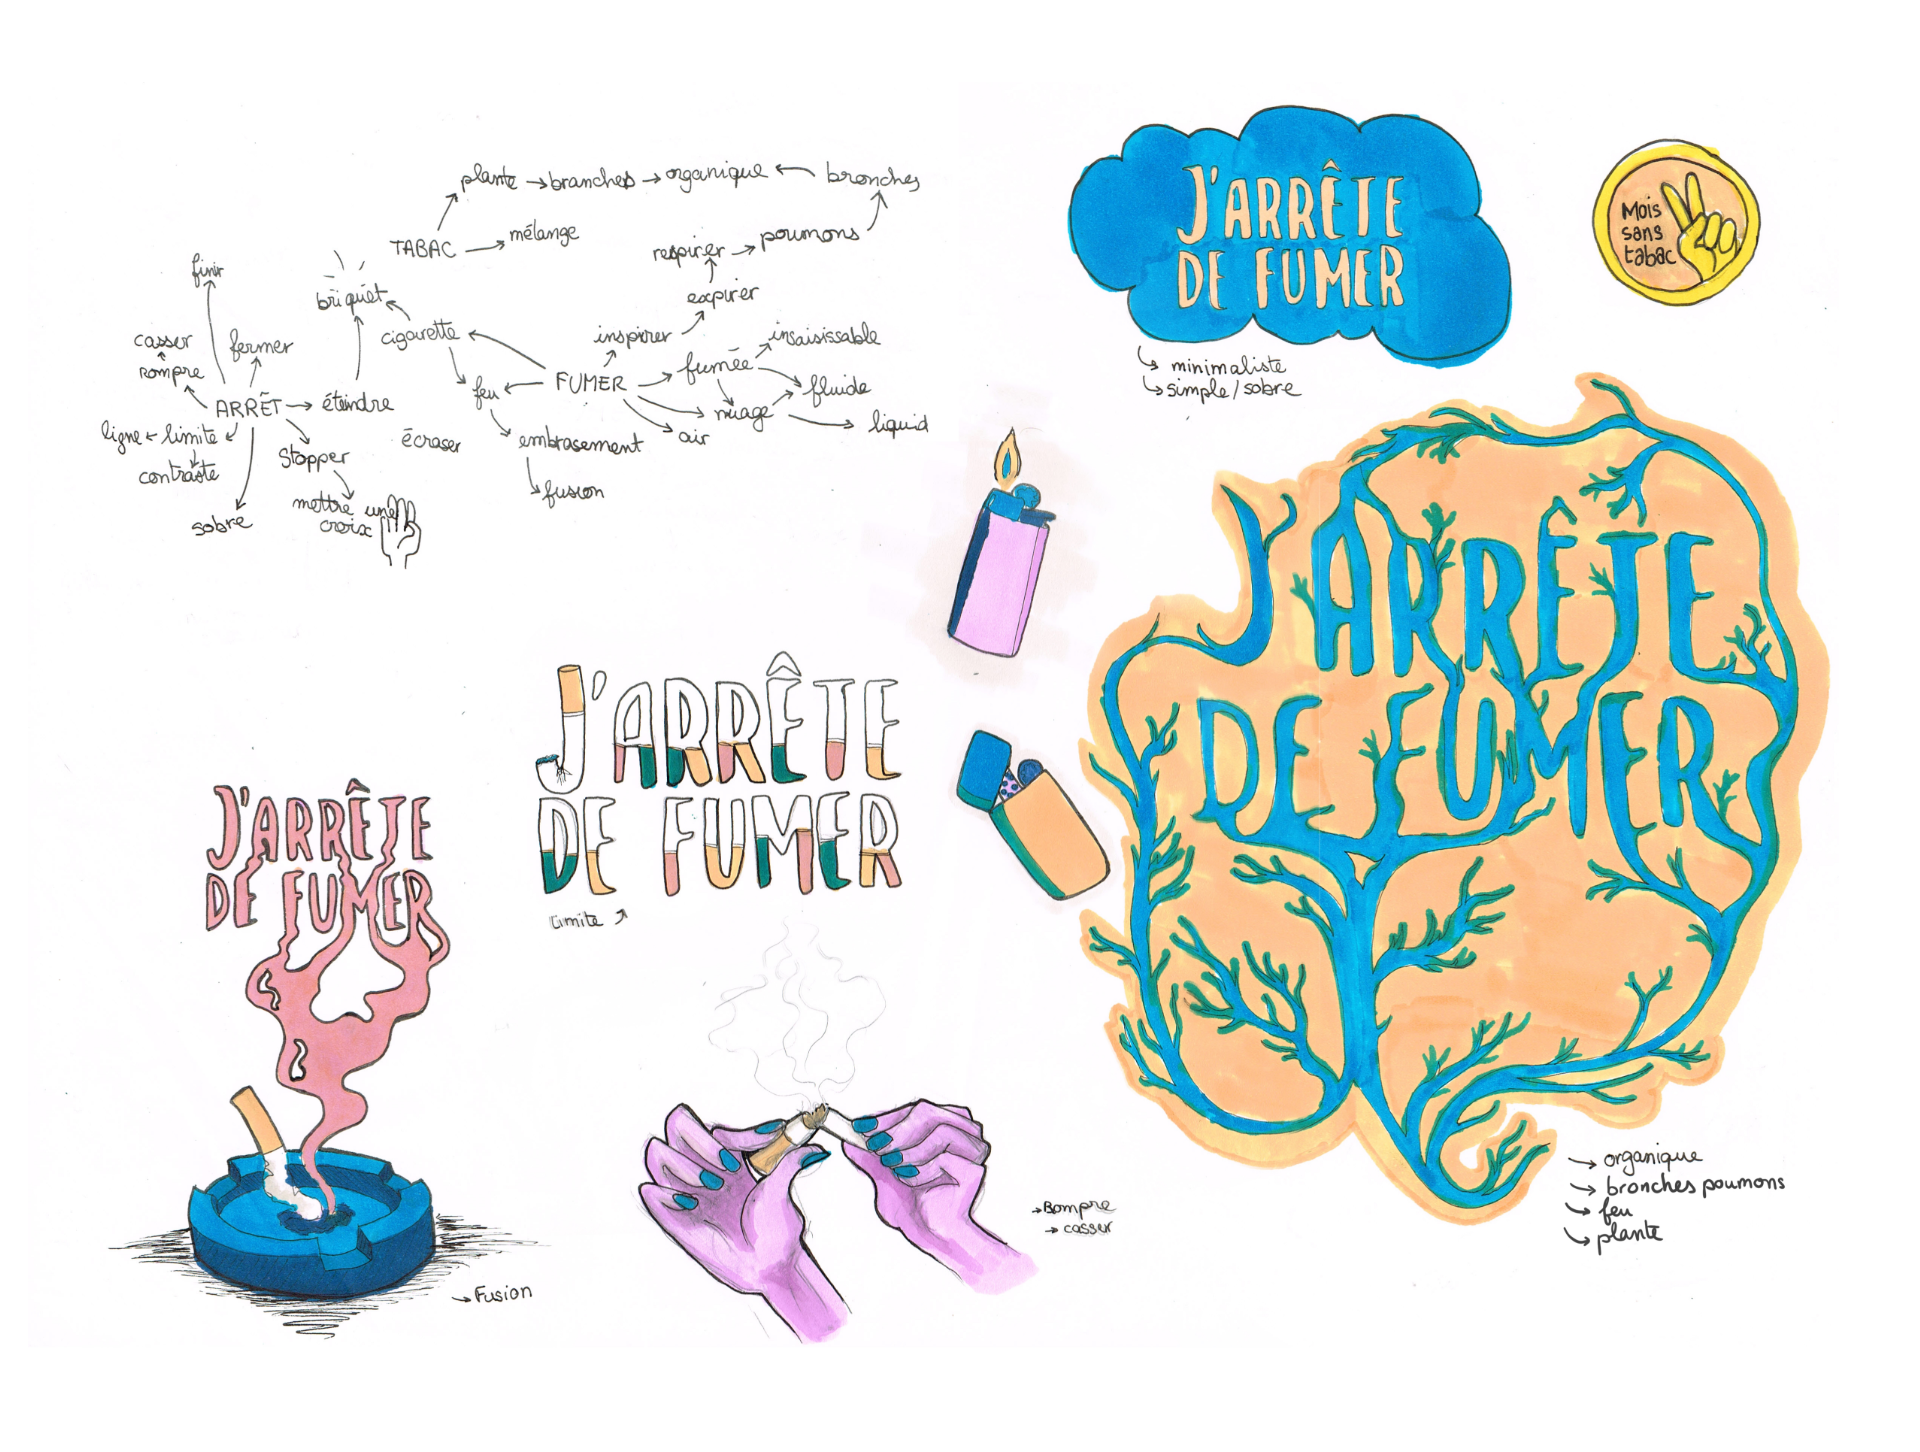 plante → branches → organique ← bronches
TABAC → mélange
respirer → poumons
finir
briquet
expirer
casser
fermer
cigarette
inspirer
insaisissable
rompre
fumée
feu
FUMER
fluide
ARRÊT → éteindre
nuage
liquid
ligne ← limite
écraser
embrasement
air
contraste
Stopper
fusion
sobre
mettre une
croix
J'ARRÊTE
DE FUMER
↳ minimaliste
↳ simple/sobre
Mois
sans
tabac
J'ARRÊTE
DE FUMER
→ organique
→ bronches poumons
↳ feu
↳ plante
J'ARRÊTE
DE FUMER
Limite
J'ARRÊTE
DE FUMER
→ Fusion
→ Rompre
→ casser